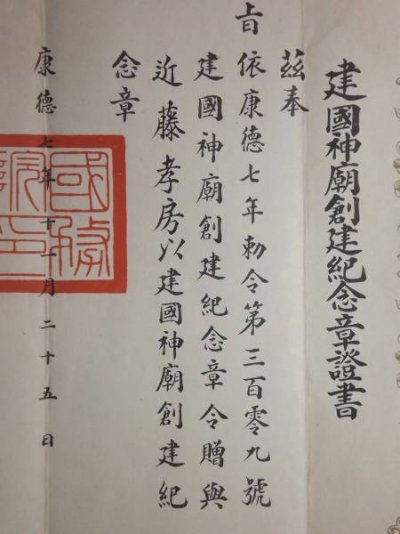 建國神廟創建紀念章證書
茲奉
旨依康德七年勅令第三百零九號
建國神廟創建紀念章令贈與
近藤孝房以建國神廟創建紀
念章
康德七年十一月二十五日
國務
院印